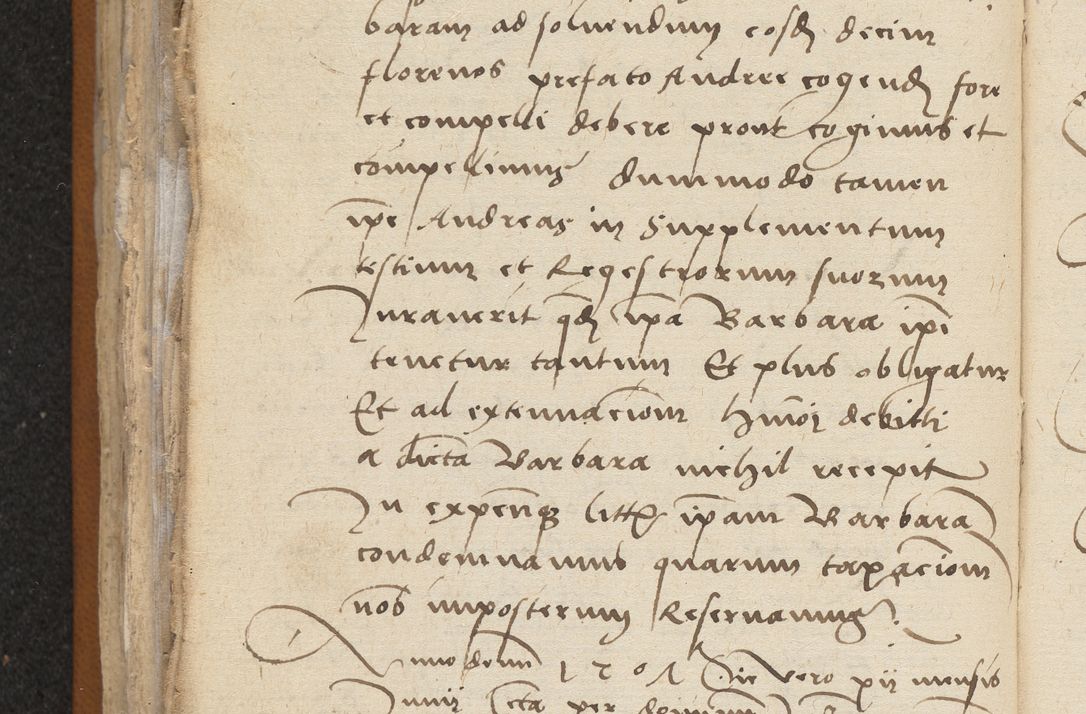 baram ad soluendum eosd decim
florenos prefato Andree cogend fore
et compelli debere prout cogimus et
compellimus dummodo tamen
ipe Andreas in Supplementum
testium et Regestrorum suorum
Jurauerit qd ipa Barbara ipi
tenetur tantum Et plus obligatur
Et ad extenuaciom hmoi debitti
a dicta Barbara nichil recepit
In expensq litt ipam Barbara
condemnamus quarum taxaciom
nob imposterum Reseruamus.
Anno domi 1501 Die vero xij mensis
Junij per